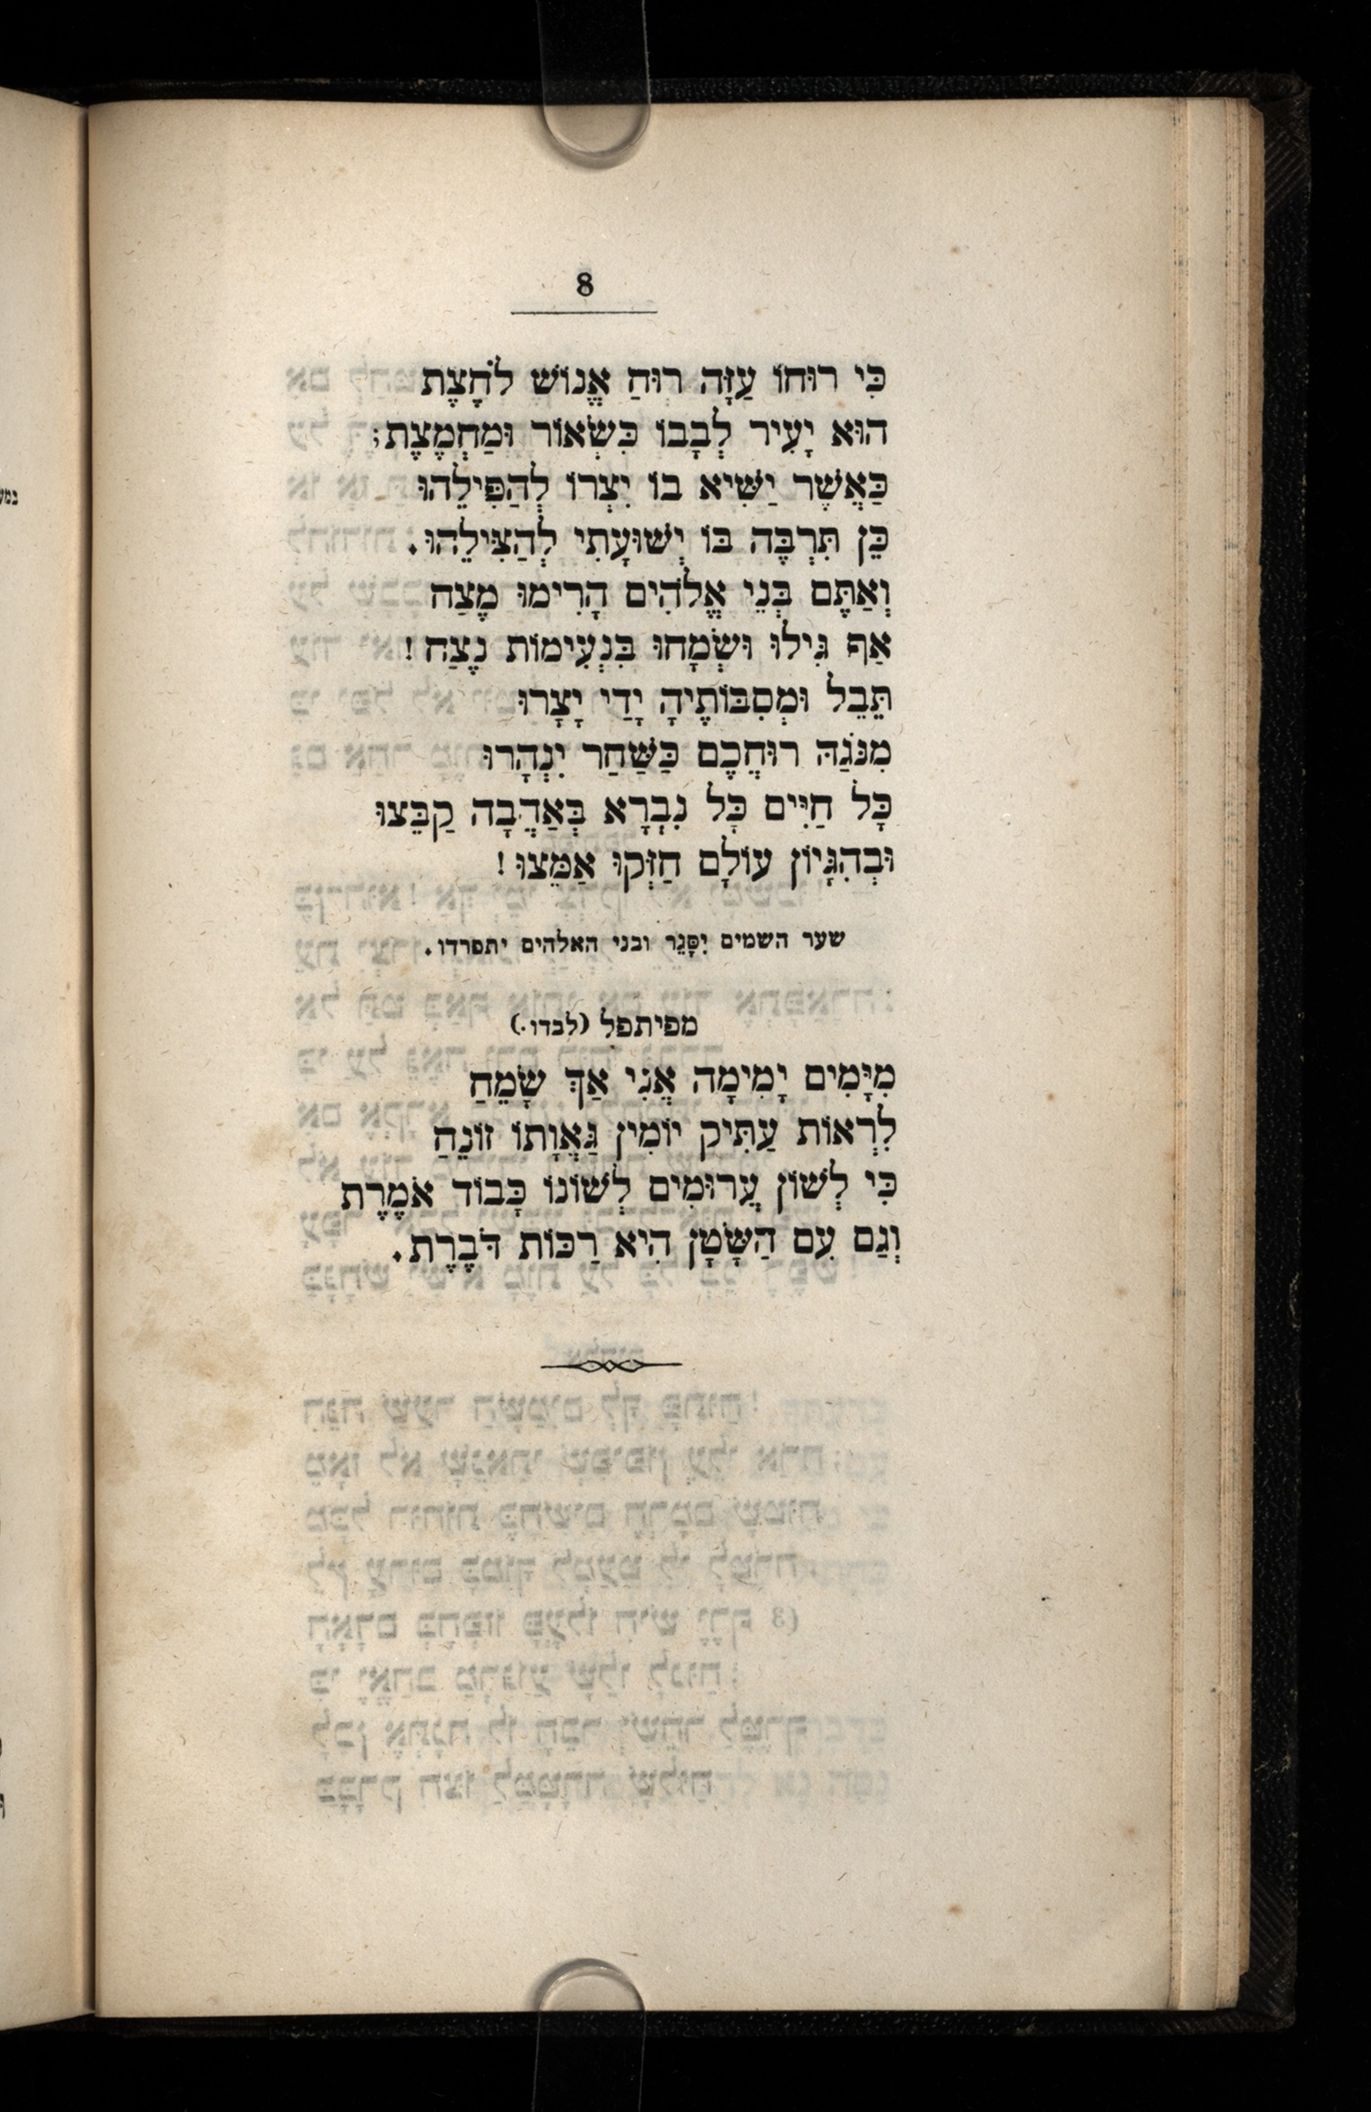 8
כִּי רוּחוֹ עַזָּה רוּחַ אֱנוֹשׁ לֹחֶצֶת
הוּא יָעִיר לְבָבוֹ כִּשְׂאוֹר וּמַחְמֶצֶת;
כַּאֲשֶׁר יַשִּׁיא בוֹ יִצְרוֹ לְהַפִּילֵהוּ
כֵּן תִּרְבֶּה בּוֹ יְשׁוּעָתִי לְהַצִּילֵהוּ.
וְאַתֶּם בְּנֵי אֱלֹהִים הָרִימוּ מֶצַח
אַף גִּילוּ וּשְׂמָחוּ בִּנְעִימוֹת נֶצַח!
תֵּבֵל וּמְסִבּוֹתֶיהָ יָדַי יָצָרוּ
מִנֹּגַהּ רוּחֲכֶם כַּשַּׁחַר יִנְהָרוּ
כָּל חַיִּים כָּל נִבְרָא בְּאַהֲבָה קַבֵּצוּ
וּבְהִגָּיוֹן עוֹלָם חַזְּקוּ אַמֵּצוּ!
שער השמים יִסָּגֵר ובני האלהים יתפרדו.
מפיתפל (לבדו.)
מִיָּמִים יָמִימָה אֲנִי אַךְ שָׂמֵחַ
לִרְאוֹת עַתִּיק יוֹמִין גַּאֲוָתוֹ זוֹנֵחַ
כִּי לְשׁוֹן עֲרוּמִים לְשׁוֹנוֹ כָּבוֹד אֹמֶרֶת
וְגַם עִם הַשָּׂטָן הִיא רַכּוֹת דֹּבֶרֶת.